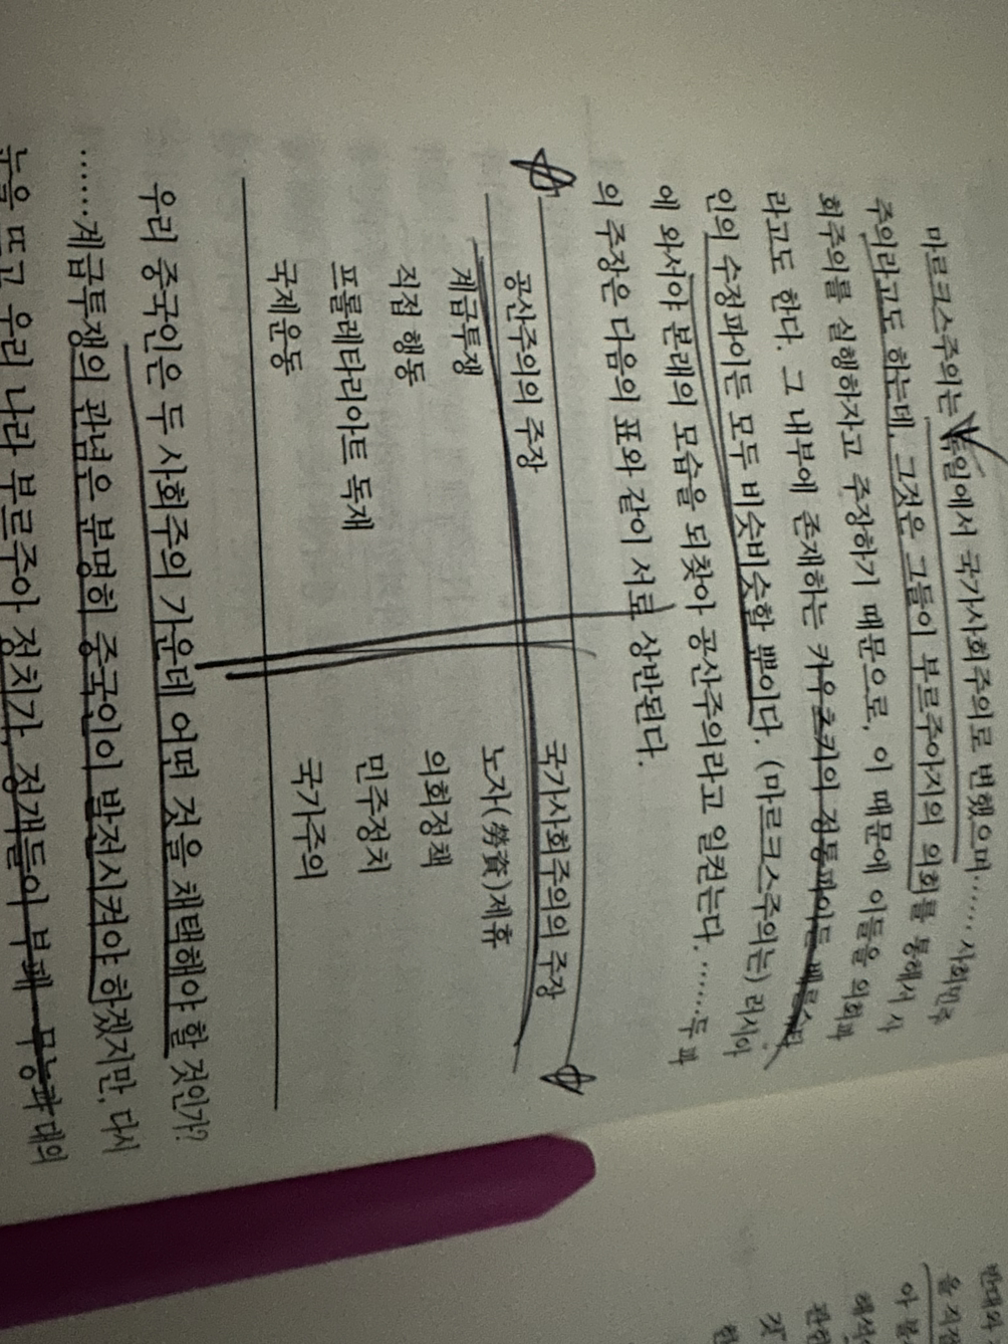 마르크스주의는 독일에서 국가사회주의로 변했으며…… 사회민주
주의라고도 하는데, 그것은 그들이 부르주아지의 의회를 통해서 사
회주의를 실행하자고 주장하기 때문으로, 이 때문에 이들을 의회파
라고도 한다. 그 내부에 존재하는 카우츠키의 정통파이든 베른슈타
인의 수정파이든 모두 비슷비슷할 뿐이다. (마르크스주의는) 러시아
에 와서야 본래의 모습을 되찾아 공산주의라고 일컫는다. ……두 파
의 주장은 다음의 표와 같이 서로 상반된다.
공산주의의 주장 국가사회주의의 주장
계급투쟁 노자(勞資)제휴
직접 행동 의회정책
프롤레타리아트 독재 민주정치
국제운동 국가주의
우리 중국인은 두 사회주의 가운데 어떤 것을 채택해야 할 것인가?
……계급투쟁의 관념은 분명히 중국인이 발전시켜야 하겠지만, 다시
눈을 뜨고 우리 나라 부르주아 정치가, 정객들의 부패 무능과 대의
반대와
을
아
해석
관
것